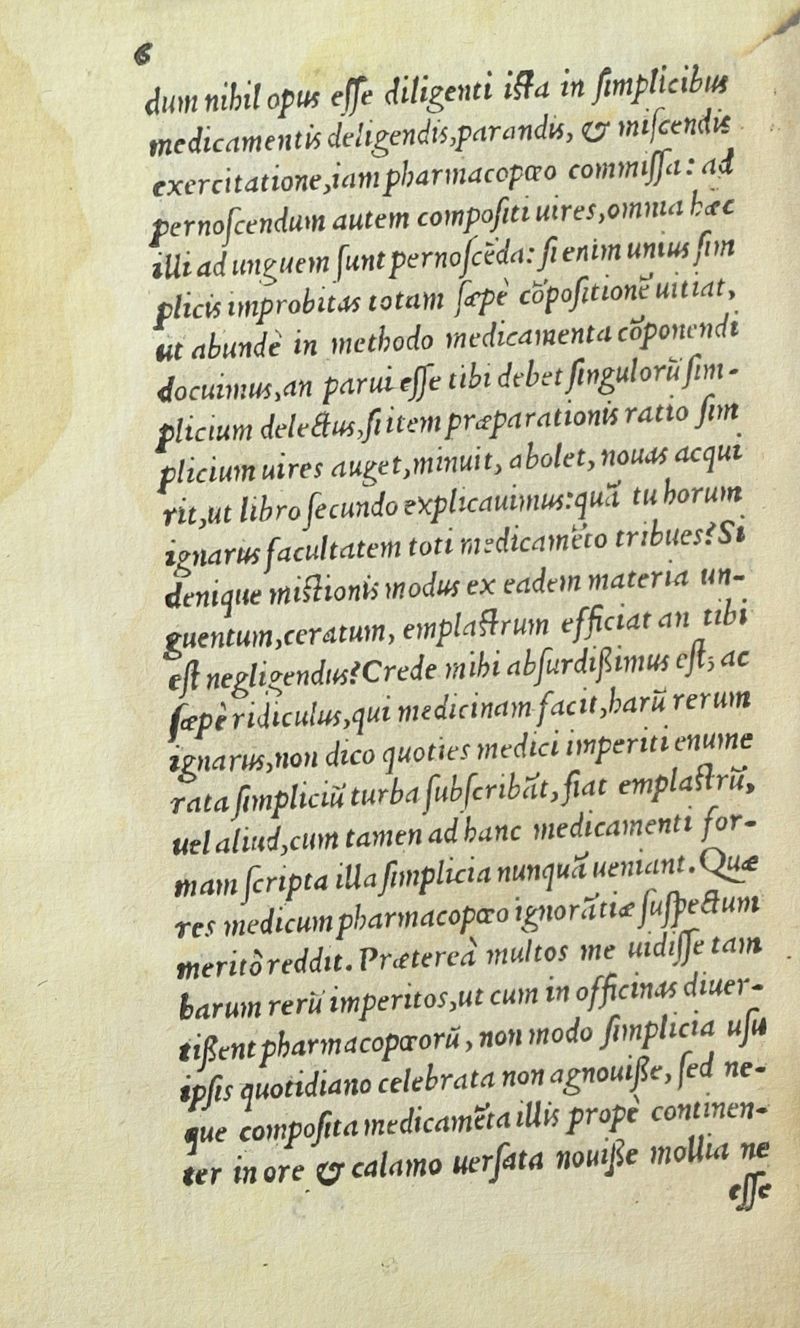 6
dum nihil opus eſſe diligenti iſta in ſimplicibus
medicamentis deligendis, parandis, & miſcendis
exercitatione, iam pharmacopœo commiſſa: ad
pernoſcendum autem compoſiti uires, omnia hæc
illi ad unguem ſunt pernoſcēda: ſi enim unius ſim
plicis improbitas totam ſæpè cōpoſitionē uitiat,
ut abundè in methodo medicamenta cōponendi
docuimus, an parui eſſe tibi debet ſingulorū ſim-
plicium delectus, ſi item præparationis ratio ſim
plicium uires auget, minuit, abolet, nouas acqui
rit, ut libro ſecundo explicauimus: quā tu horum
ignarus facultatem toti medicamēto tribues? Si
denique miſtionis modus ex eadem materia un-
guentum, ceratum, emplaſtrum efficiat an tibi
eſt negligendus? Crede mihi abſurdißimus eſt, ac
ſæpè ridiculus, qui medicinam facit, harū rerum
ignarus, non dico quoties medici imperiti enume
rata ſimpliciū turba ſubſcribāt, fiat emplaſtrū,
uel aliud, cum tamen ad hanc medicamenti for-
mam ſcripta illa ſimplicia nunquā ueniant. Quæ
res medicum pharmacopœo ignorātiæ ſuſpectum
meritò reddit. Præterea multos me uidiſſe tam
harum rerū imperitos, ut cum in officinas diuer-
tißent pharmacopœorū, non modo ſimplicia uſu
ipſis quotidiano celebrata non agnouiße, ſed ne-
que compoſita medicamēta illis propè continen-
ter in ore & calamo uerſata nouiße mollia ne
eſſe